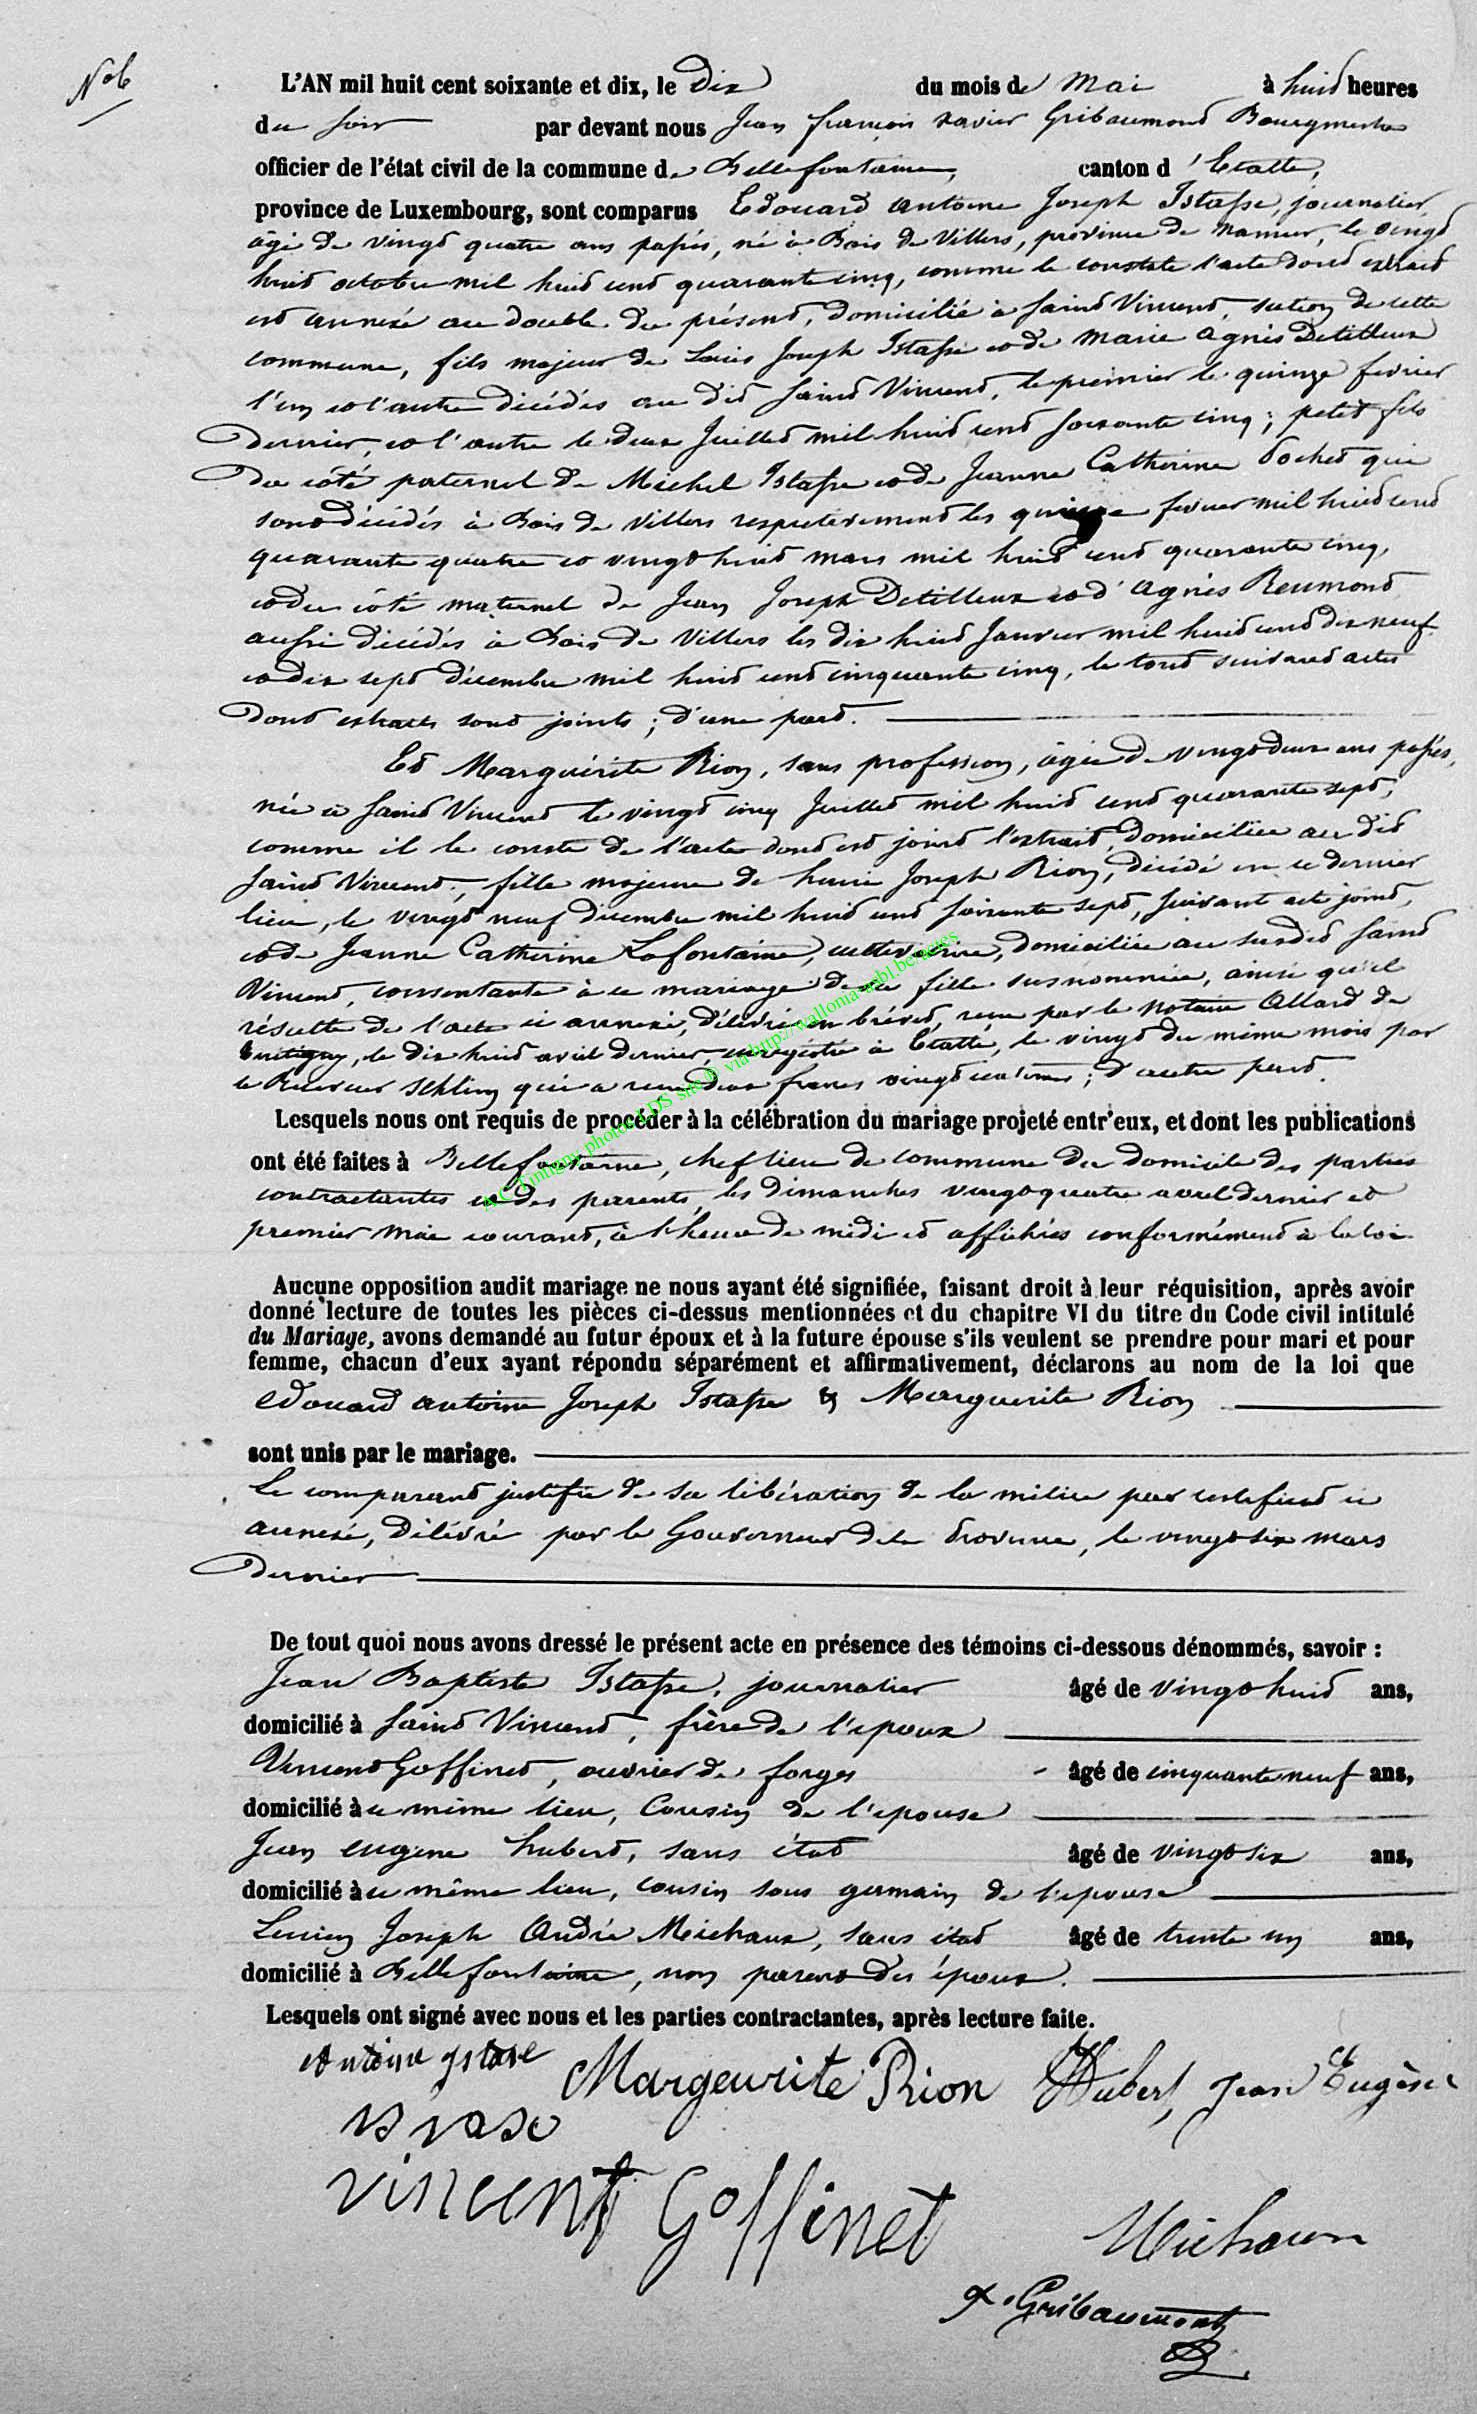 N° 6
L'AN mil huit cent soixante et dix, le Dix du mois de Mai à huit heures
du soir par devant nous Jean françois xavier Gribaumont Bourgmestre
officier de l'état civil de la commune de Bellefontaine, canton d'Etalle,
province de Luxembourg, sont comparus Edouard antoine Joseph Istasse, journalier,
âgé de vingt quatre ans passés, né à Bois de Villers, province de Namur, le vingt
huit octobre mil huit cent quarante cinq, comme le constate l'acte dont extrait
est annexé au double du présent, domicilié à Saint Vincent, section de cette
commune, fils majeur de Louis Joseph Istasse et de Marie Agnès Detilleux
l'un et l'autre décédés au dit Saint Vincent, le premier le quinze février
dernier, et l'autre le deux Juillet mil huit cent soixante cinq; petit fils
du côté paternel de Michel Istasse et de Jeanne Catherine Pochet qui
sont décédés à Bois de Villers respectivement les quinze fevrier mil huit cent
quarante quatre et vingt huit mars mil huit cent quarante cinq,
et du côté maternel de Jean Joseph Detilleux et d'Agnès Reumont
aussi décédés à Bois de Villers les dix huit Janvier mil huit cent dix neuf
et dix sept Décembre mil huit cent cinquante cinq, le tout suivant actes
dont extraits sont joints; d'une part.
Et Marguérite Rion, sans profession, âgée de vingt deux ans passés,
née à Saint Vincent le vingt cinq Juillet mil huit cent quarante sept,
comme il le conste de l'acte dont est joint l'extrait, domiciliée au dit
Saint Vincent; fille majeure de henri Joseph Rion, décédé en ce dernier
lieu, le vingt neuf décembre mil huit cent soixante sept, suivant acte joint,
et de Jeanne Catherine Lafontaine, cultivatrice, domiciliée au susdit Saint
Vincent, consentante à ce mariage de sa fille susnommée, ainsi qu'il
résulte de l'acte ci annexé, délivré en brévet, reçu par le Notaire Allard de
Tintigny, le dix huit avril dernier, enregistré à Etalle, le vingt du même mois par
le Receveur Schling qui a reçu deux francs vingt centimes; d'autre part.
Lesquels nous ont requis de procéder à la célébration du mariage projeté entr'eux, et dont les publications
ont été faites à Bellefontaine, chef lieu de commune du domicile des parties
contractantes et des parents, les Dimanches vingt quatre avril dernier et
premier mai courant, à l'heure de midi et affichées conformément à la loi
Aucune opposition audit mariage ne nous ayant été signifiée, faisant droit à leur réquisition, après avoir
donné lecture de toutes les pièces ci-dessus mentionnées et du chapitre VI du titre du Code civil intitulé
du Mariage, avons demandé au futur époux et à la future épouse s'ils veulent se prendre pour mari et pour
femme, chacun d'eux ayant répondu séparément et affirmativement, déclarons au nom de la loi que
edouard antoine Joseph Istasse & Marguerite Rion
sont unis par le mariage.
Le comparant justifie de sa libération de la milice par certificat ci
annexé, délivré par le Gouverneur de la Province, le vingt six mars
dernier
De tout quoi nous avons dressé le présent acte en présence des témoins ci-dessous dénommés, savoir :
Jean Baptiste Istasse, journalier âgé de vingt huit ans,
domicilié à Saint Vincent, frère de l'epoux
Vincent Goffinet, ouvrier de forges âgé de cinquante neuf ans,
domicilié à ce même lieu, Cousin de l'epouse
Jean eugene hubert, sans état âgé de vingt six ans,
domicilié à ce même lieu, cousin sous germain de l'epouse
Lucien Joseph André Michaux, sans état âgé de trente un ans,
domicilié à Bellefontaine, non parent des époux.
Lesquels ont signé avec nous et les parties contractantes, après lecture faite.
Antoine Istase Margeurite Rion Hubert, Jean Eugène
Vincent Goffinet
Michaux
X. Gribaumont
A.C. Tintigny photos LDS site © via http://wallonia-asbl.be/actes